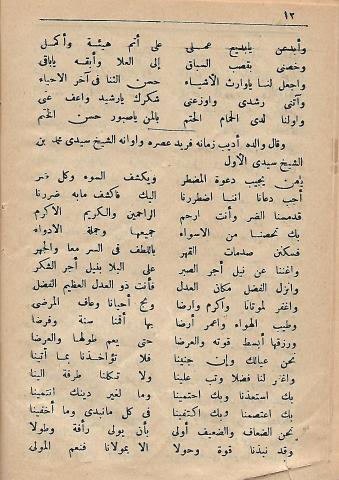 ١٢
وأبدعن يابديع عملى على أتم هيئة وأكمل
وخصنى بقصب السباق إلى العلا وأبقه ياباقى
واجعل لنا ياوارث الأشياء حسن الثنا فى آخر الأحياء
وآتنى رشدى وأوزعنى شكرك يارشيد واعف عنى
وأولنا لدى الحمام الختم بالمن ياصبور حسن الختم
وقال والده أديب زمانه فريد عصره وأوانه الشيخ سيدى محمد بن
الشيخ سيدى الأول
يامن يجيب دعوة المضطر ويكشف السوء وكل ضر
أجب دعانا اننا اضطررنا اليك فاكشف مابه ضررنا
قدمسنا الضر وأنت ارحم الراحمين والكريم الأكرم
بك تحصنا من الاسواء جميعها وجملة الادواء
فسكنن صدمات القهر باللطف فى السر معا والجهر
واغننا عن نيل أجر الصبر على البلا بنيل أجر الشكر
وانزل الفضل مكان العدل فأنت ذو العدل العظيم الفضل
واغفر لموتانا وأكرم وارضا ونج أحيانا وعاف المرضى
وطيب الهواء واعمر أرضا بها أقمنا سنة وفرضا
ورزقها أبسط قوته والعرضا حتى يعم طولها والعرضا
نحن عيالك وإن جنينا فلا تؤاخذنا بما أتينا
واغفر لنا فضلا وتب علينا ولا تكلنا طرفة الينا
بك استعذنا وبك احتمينا وما لغير دينك انتمينا
بك اعتصمنا وبك اكتفينا فى كل مانبدى وما أخفينا
نحن الضعاف والضعيف أولى بأن يولى رأفة وطولا
وقد نبذنا قوة وحولا الا بمولانا فنعم المولى